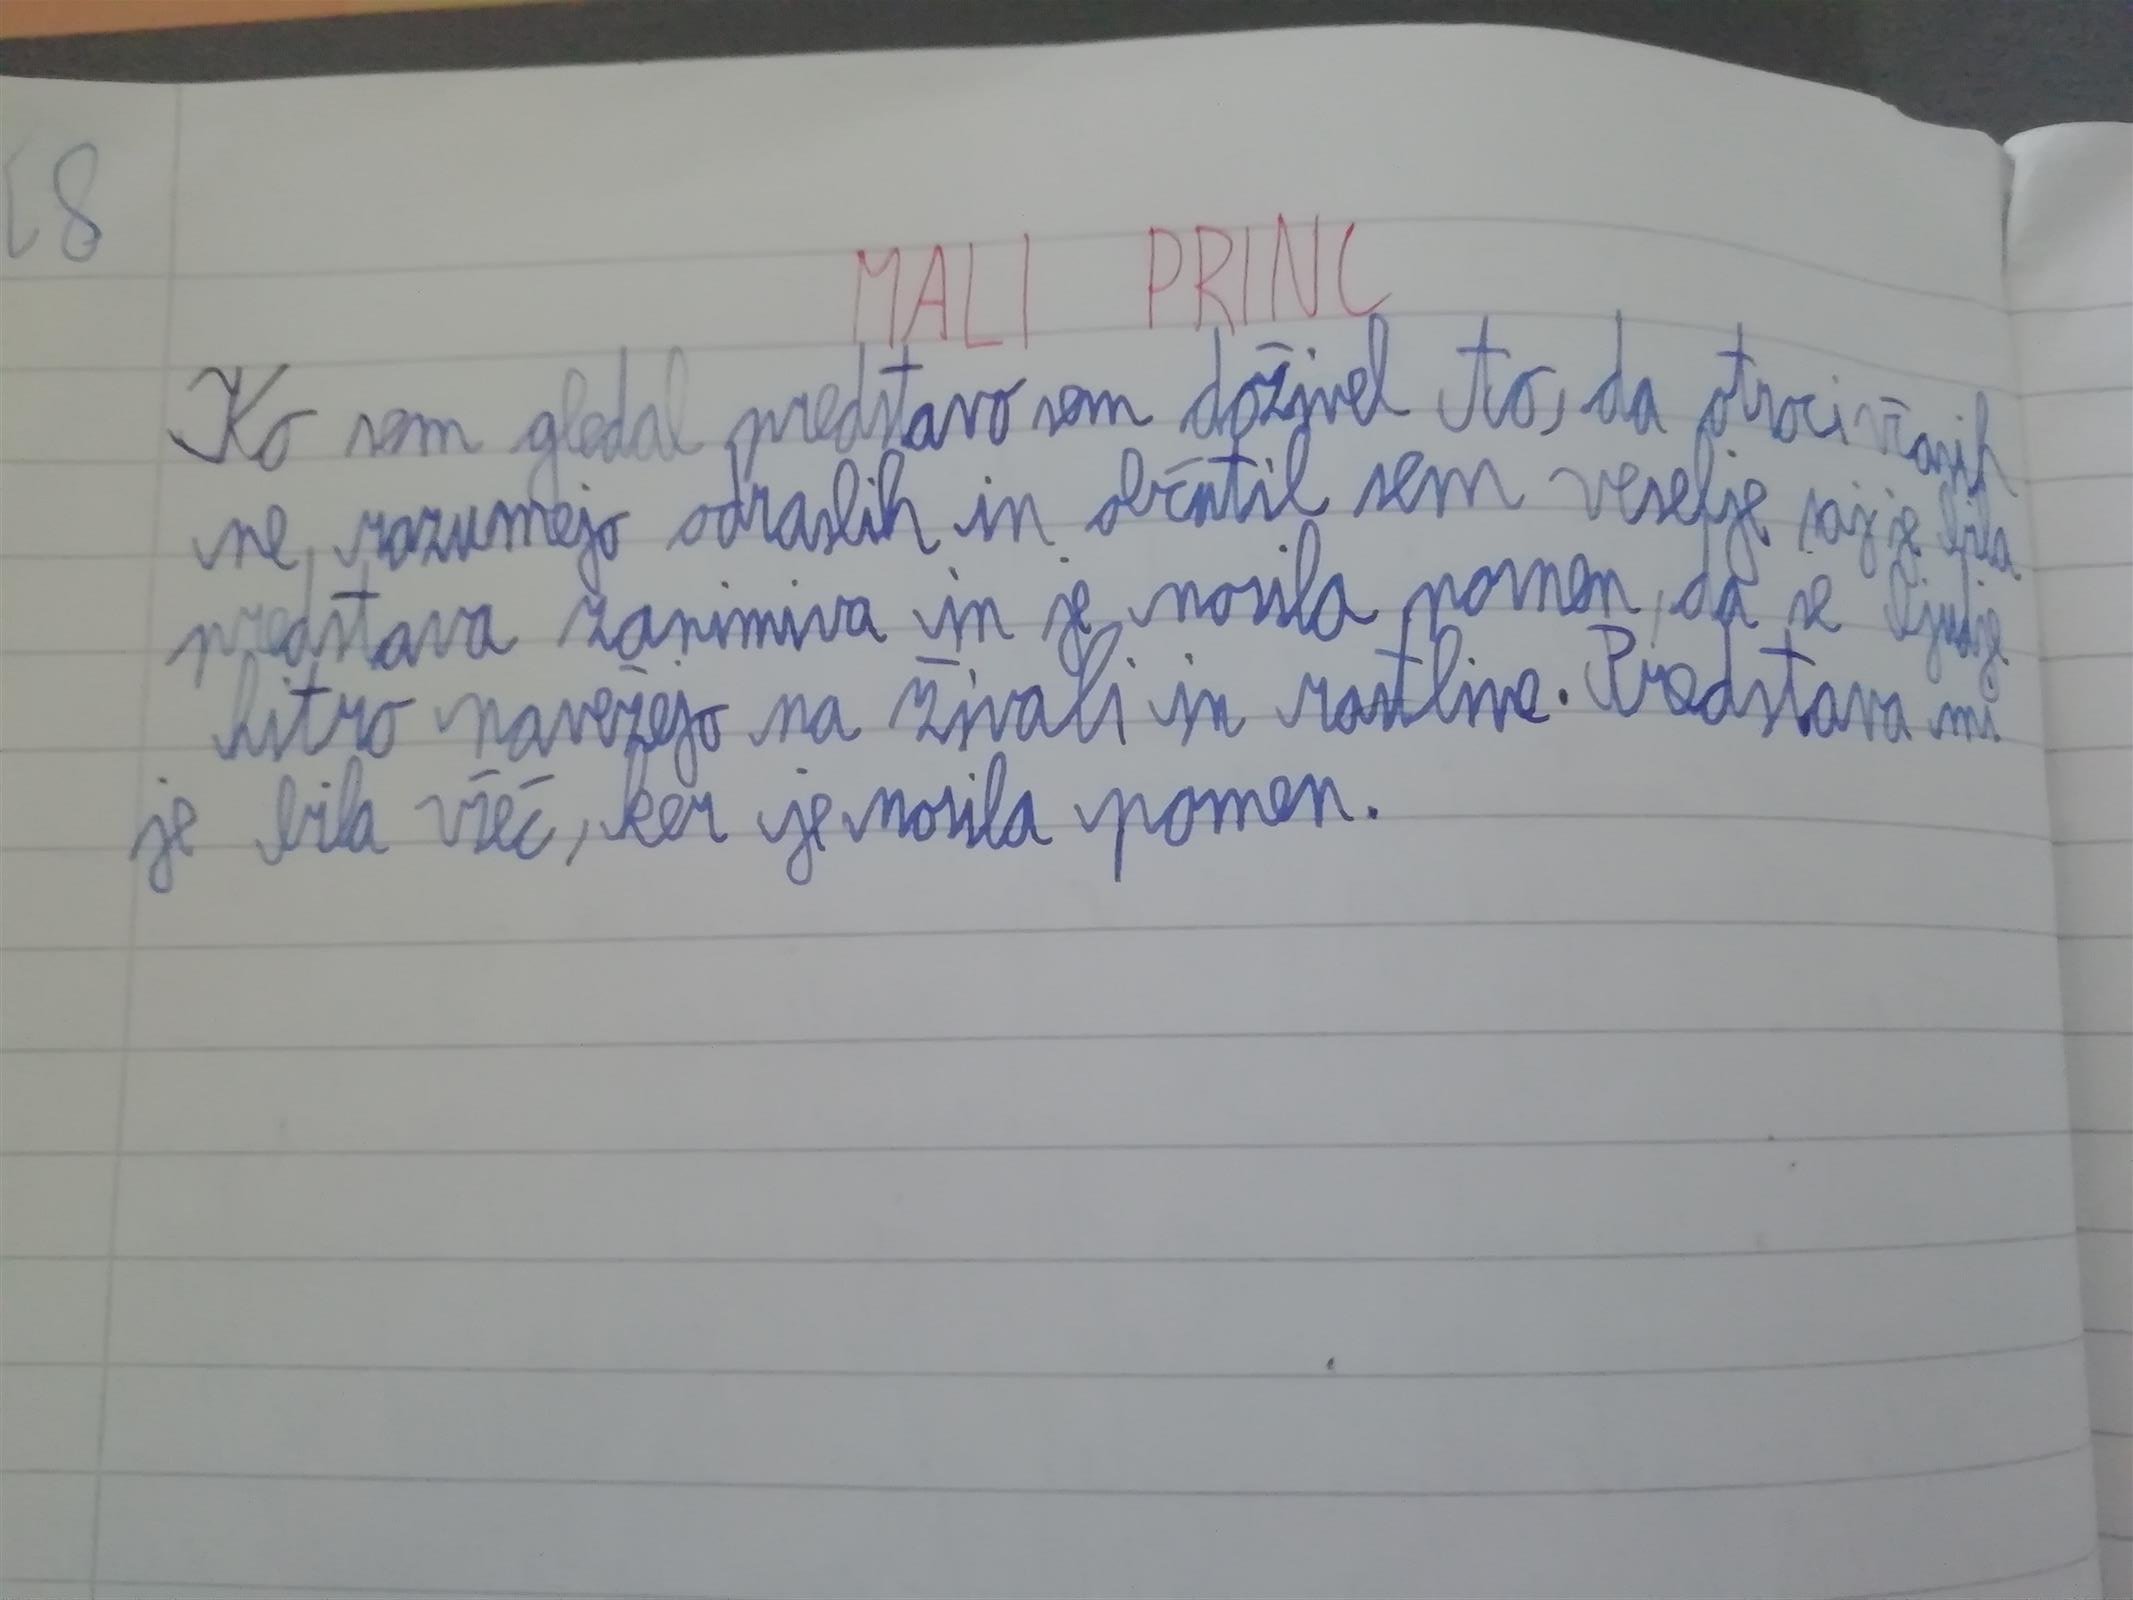 18
MALI PRINC
Ko sem gledal predstavo sem doživel to, da otroci včasih
ne razumejo odraslih in občutil sem veselje saj je bila
predstava zanimiva in je nosila pomen, da se ljudje
hitro navežejo na živali in rastline. Predstava mi
je bila všeč, ker je nosila pomen.